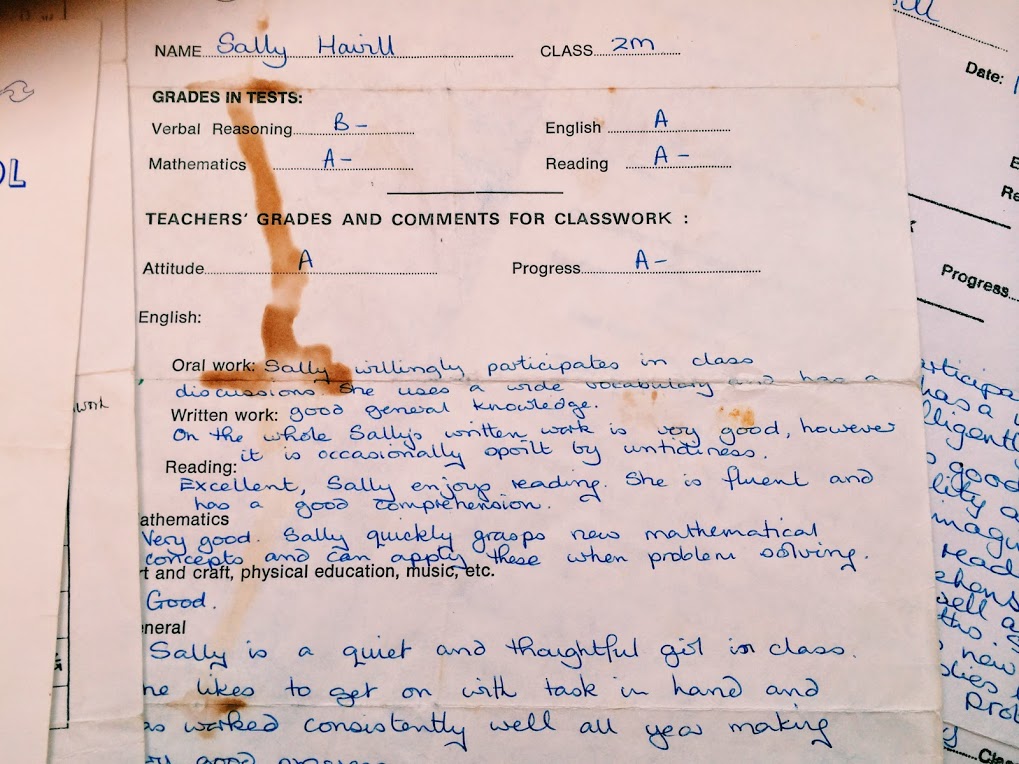 NAME Sally Havill CLASS 2M
GRADES IN TESTS:
Verbal Reasoning B- English A
Mathematics A- Reading A-
TEACHERS' GRADES AND COMMENTS FOR CLASSWORK :
Attitude A Progress A-
English:
Oral work: Sally willingly participates in class
discussions. She uses a wide vocabulary and has a
Written work: good general knowledge.
On the whole Sallys written work is very good, however
it is occasionally spoilt by untidiness.
Reading:
Excellent, Sally enjoys reading. She is fluent and
has a good comprehension.
athematics
Very good. Sally quickly grasps new mathematical
concepts and can apply these when problem solving.
t and craft, physical education, music, etc.
Good.
neral
Sally is a quiet and thoughtful girl in class.
he likes to get on with task in hand and
as worked consistently well all year making
good progress
OL
work
ill
Date:
E
Re
Progress
articipa
has a
lligently
good
lity a
imagin
read
ehens
well a
this. S
new
plies
prob
Clas